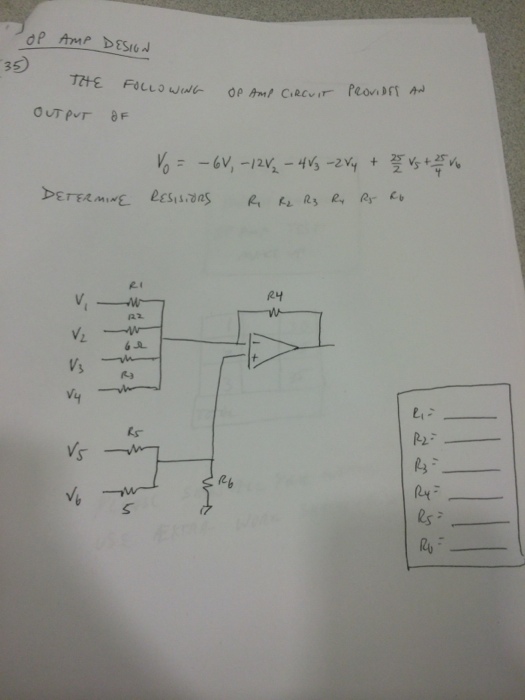 OP AMP DESIGN
35)
THE FOLLOWING OP AMP CIRCUIT PROVIDES AN
OUTPUT OF
V₀ = -6V₁ -12V₂ -4V₃ -2V₄ + 25/2 V₅ + 25/4 V₆
DETERMINE RESISTORS R₁ R₂ R₃ R₄ R₅ R₆
R1
V₁
R2
V₂
6Ω
V₃
R3
V₄
R4
-
+
R5
V₅
V₆
5
R6
R₁=
R₂=
R₃=
R₄=
R₅=
R₆=